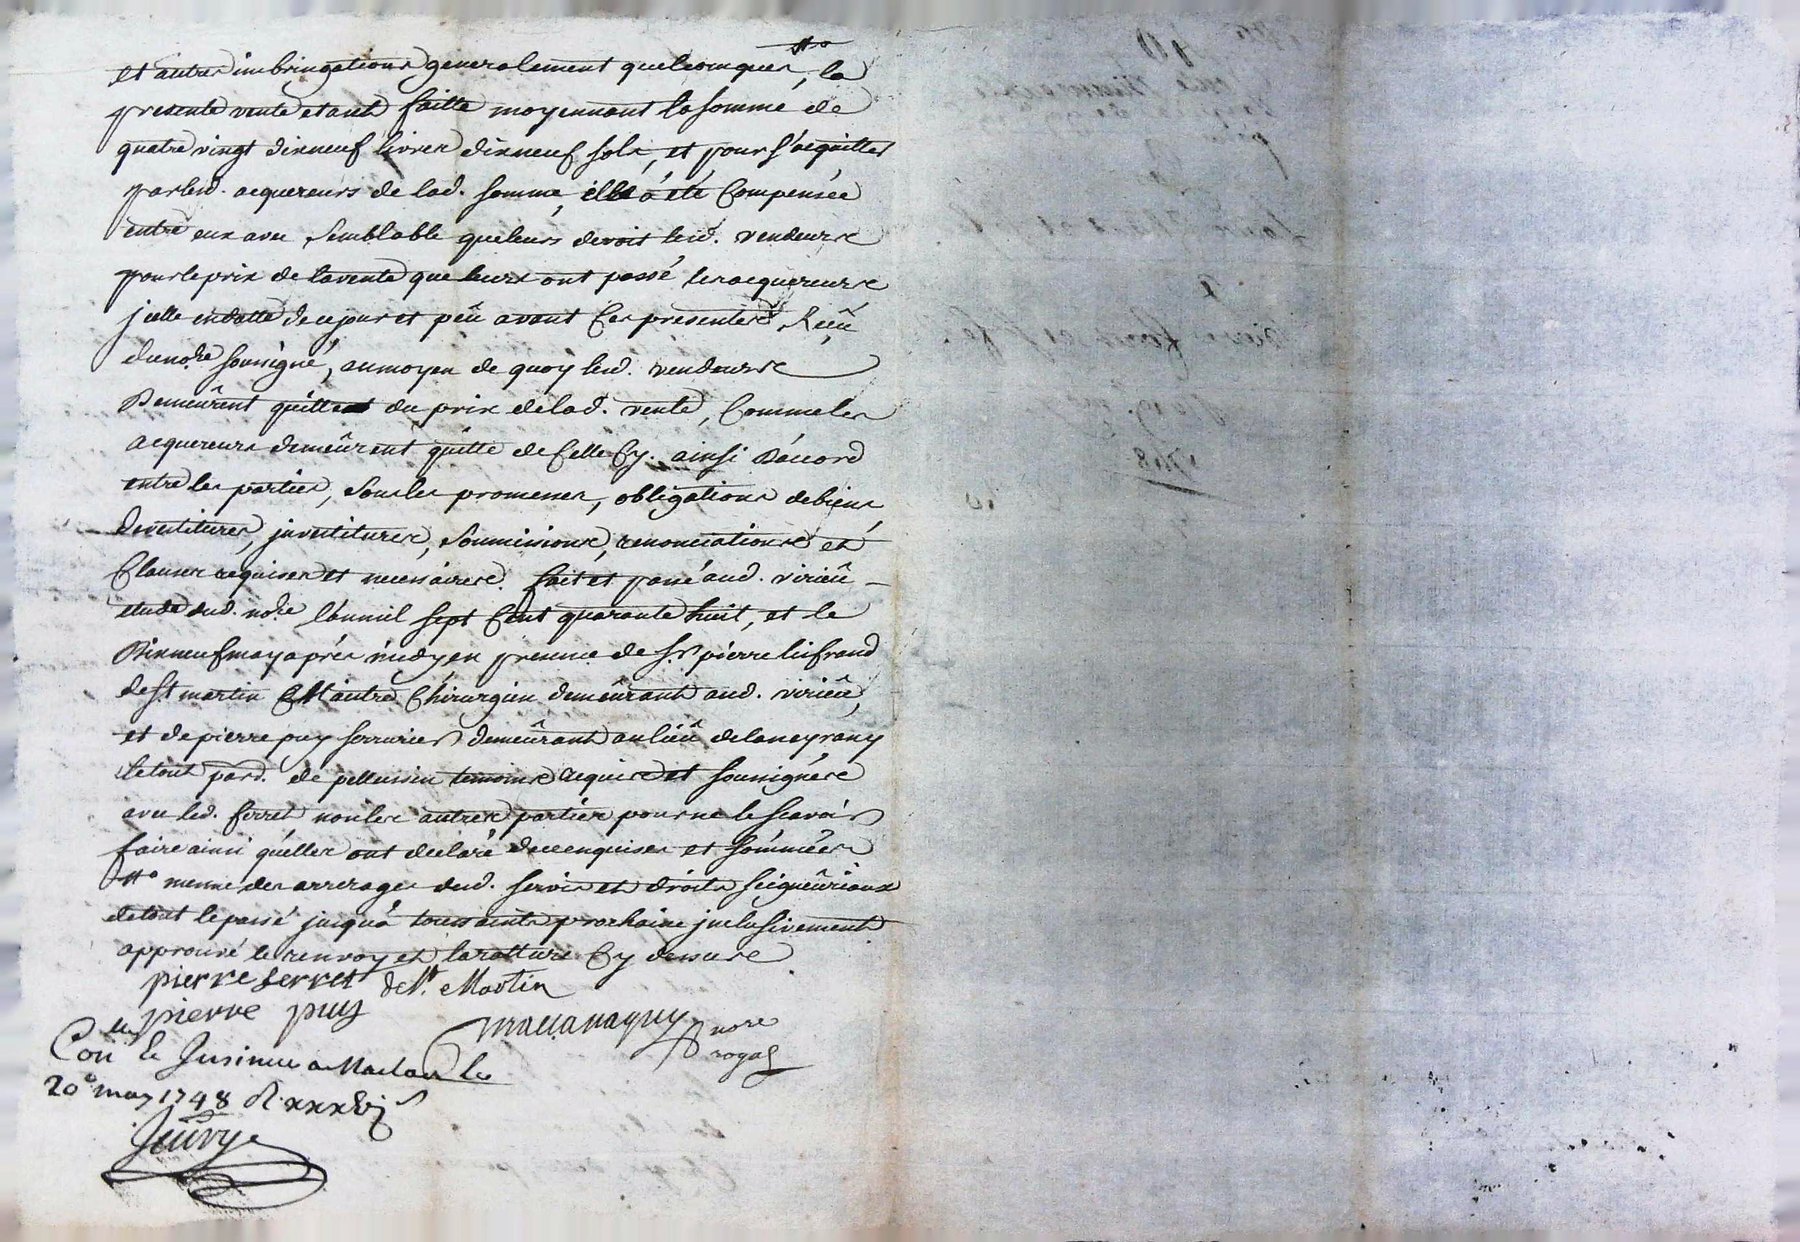 et autres imbringations generalement quelconques, la
presente vente etant faitte moyennant la somme de
quatre vingt dixneuf livres dixneuf sols, et pour s'acquitter
par lesd. acquereurs de lad. somme, elle a été Compensée
entre eux avec semblable que leurs devoit lesd. vendeurs
pour le prix de la vente que leurs ont passé les acquereurs
jcelle en datte de ce jour et peû avant Ces presentes Reçû
du no.re soussigné, au moyen de quoy lesd. vendeurs
Demeûrent quittes du prix de lad. vente, Comme les
acquereurs demeûrent quitte de Celle Cy. ainsi D'accord
entre les parties, sous les promesses, obligations de biens,
devestitures, jnvestitures, soumissions, renonciations et
Clauses requises et necessaires. fait et passé aud. virieû
etude dud. no.re l'an mil sept Cent quarante huit, et le
Dixneuf may après midy en presence de S.r pierre lifrand
de S.t martin M.e Chirurgien demeûrant aud. virieû,
et de pierre puy serrurier demeûrant au lieû de laneyrany
le tout parr. de pellussin temoins requis et soussignés
avec led. ferret non les autres parties pour ne le scavoir
faire ainsi qu'elles ont déclaré de ce enquises et sommées
mesme des arrerages dud. servis et droits seigneûriaux
de tout le passé jusqu'a toussaints prochaine jnclusivement
approuvé le renvoy et la ratture Cy dessus
pierre ferret de S.t Martin
pierre puy
nore
royal
Con.lé Jnsinué a Maclas le
20.e may 1748 R. xxxvj s